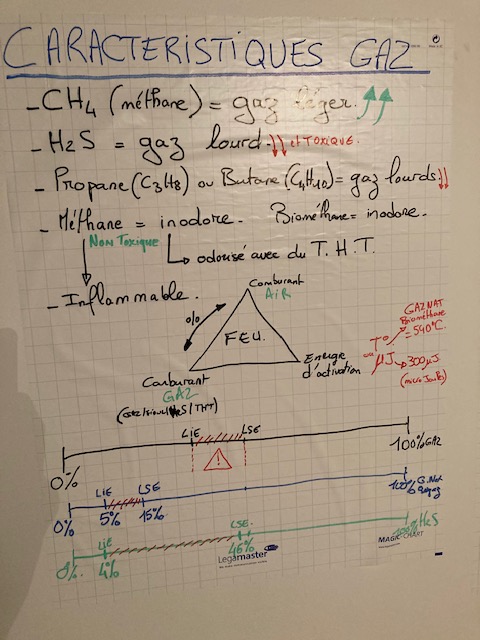 CARACTERISTIQUES GAZ
- CH4 (méthane) = gaz léger.
- H2S = gaz lourd. et TOXIQUE.
- Propane (C3H8) ou Butane (C4H10) = gaz lourds
- Méthane = inodore. Biométhane = inodore.
Non Toxique
odorisé avec du T.H.T.
- Inflammable.
Comburant
AiR
%
FEU.
GAZ NAT
Biométhane
T° = 540°C.
ou μJ 300μJ
(micro Joules)
Energie
d'activation
Carburant
GAZ
H2S/THT)
LiE LSE
0% 100% GAZ
LiE LSE
0% 5% 15% 100% G.Nat
LiE LSE.
0% 4% 46% 100% H2S
Legamaster
MAGIC-CHART